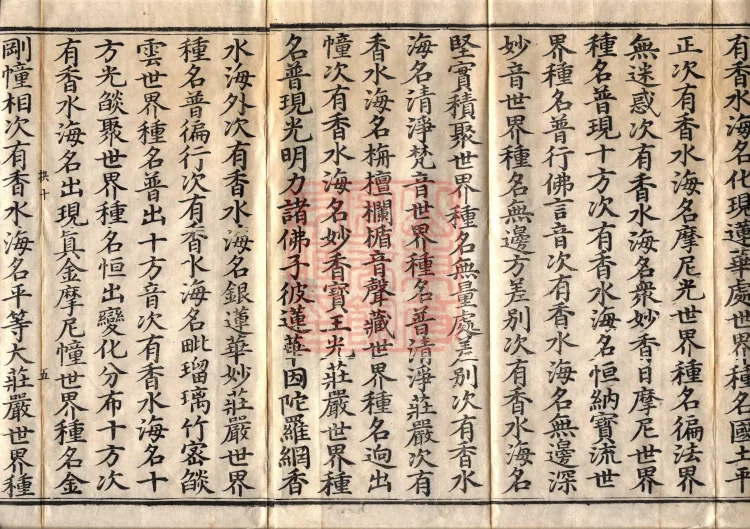 有香水海名化現蓮華處世界種名國土平
正次有香水海名摩尼光世界種名徧法界
無迷惑次有香水海名衆妙香日摩尼世界
種名普現十方次有香水海名恒納寶流世
界種名普行佛言音次有香水海名無邊深
妙音世界種名無邊方差别次有香水海名
堅實積聚世界種名無量處差别次有香水
海名清淨梵音世界種名普清淨莊嚴次有
香水海名栴檀欄楯音聲藏世界種名逈出
幢次有香水海名妙香寶王光莊嚴世界種
名普現光明力諸佛子彼蓮華因陀羅網香
水海外次有香水海名銀蓮華妙莊嚴世界
種名普徧行次有香水海名毗瑠璃竹宻燄
雲世界種名普出十方音次有香水海名十
方光燄聚世界種名恒出變化分布十方次
有香水海名出現眞金摩尼幢世界種名金
拱十 五
剛幢相次有香水海名平等大莊嚴世界種